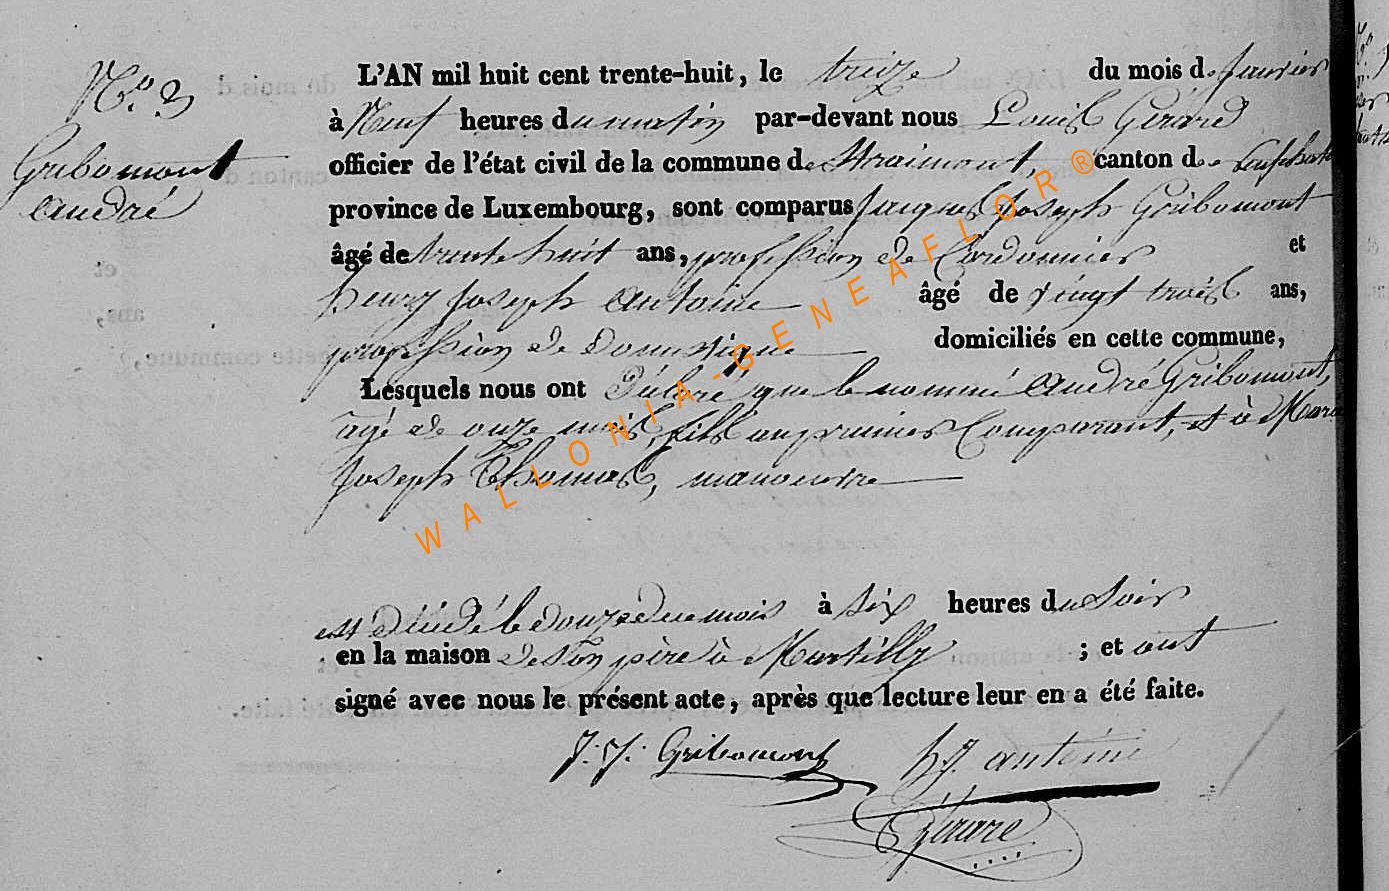 N.º 3
Gribomont
André
L'AN mil huit cent trente-huit, le treize du mois de janvier
à Neuf heures du matin par-devant nous Louis Gérard
officier de l'état civil de la commune de Straimont, canton de Neufchateau
province de Luxembourg, sont comparus Jacques Joseph Gribomont
âgé de trente huit ans, profession de Cordonnier et
henry Joseph Antoine âgé de vingt trois ans,
profession de Domestique domiciliés en cette commune,
Lesquels nous ont Déclaré que le nommé André Gribomont,
agé de onze mois, fils au premier Comparant, et à Marie
Joseph Thomas, manouvre
est décédé le douze du mois à six heures du Soir
en la maison de son père à Martilly ; et ont
signé avec nous le présent acte, après que lecture leur en a été faite.
J. J. Gribomont hJ. antoine
Gérard
WALLONIA-GENEAFLOR®